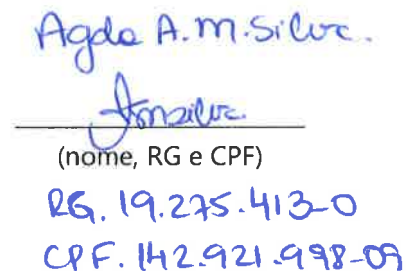 Agda A.M.Silva.
Amsilva.
(nome, RG e CPF)
RG. 19.275.413-0
CPF. 142.921.998-09